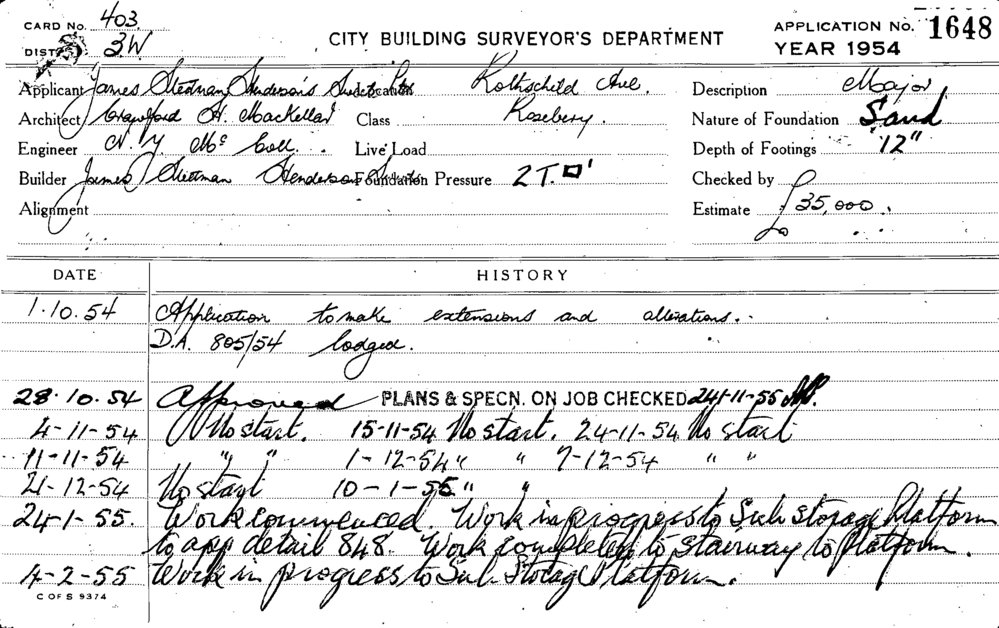 CARD No. 403
DIST. 3W
CITY BUILDING SURVEYOR'S DEPARTMENT
APPLICATION No. 1648
YEAR 1954
Applicant James Stedman Henderson's Rothschild Ave.
Description Major
Architect Crawford H. Mackellar Class Rosebery.
Nature of Foundation Sand
Engineer Mc Coll. Live Load
Depth of Footings 12"
Builder James Stedman Henderson Foundation Pressure 2 T. □'
Checked by
Alignment
Estimate £35,000.
DATE HISTORY
1.10.54 Application to make extensions and alterations.
D.A. 805/54 lodged.
28.10.54 Approved PLANS & SPECN. ON JOB CHECKED 24-11-55
4-11-54 No start. 15-11-54 No start. 24-11-54 No start
11-11-54 " " 1-12-54 " " 7-12-54 " "
21-12-54 No start 10-1-55 " "
24-1-55. Work commenced. Work in progress to Sub storage Platform
to app detail 848. Work completed to stairway to platform.
4-2-55 Work in progress to Sub Storage Platform.
C OF S 9374